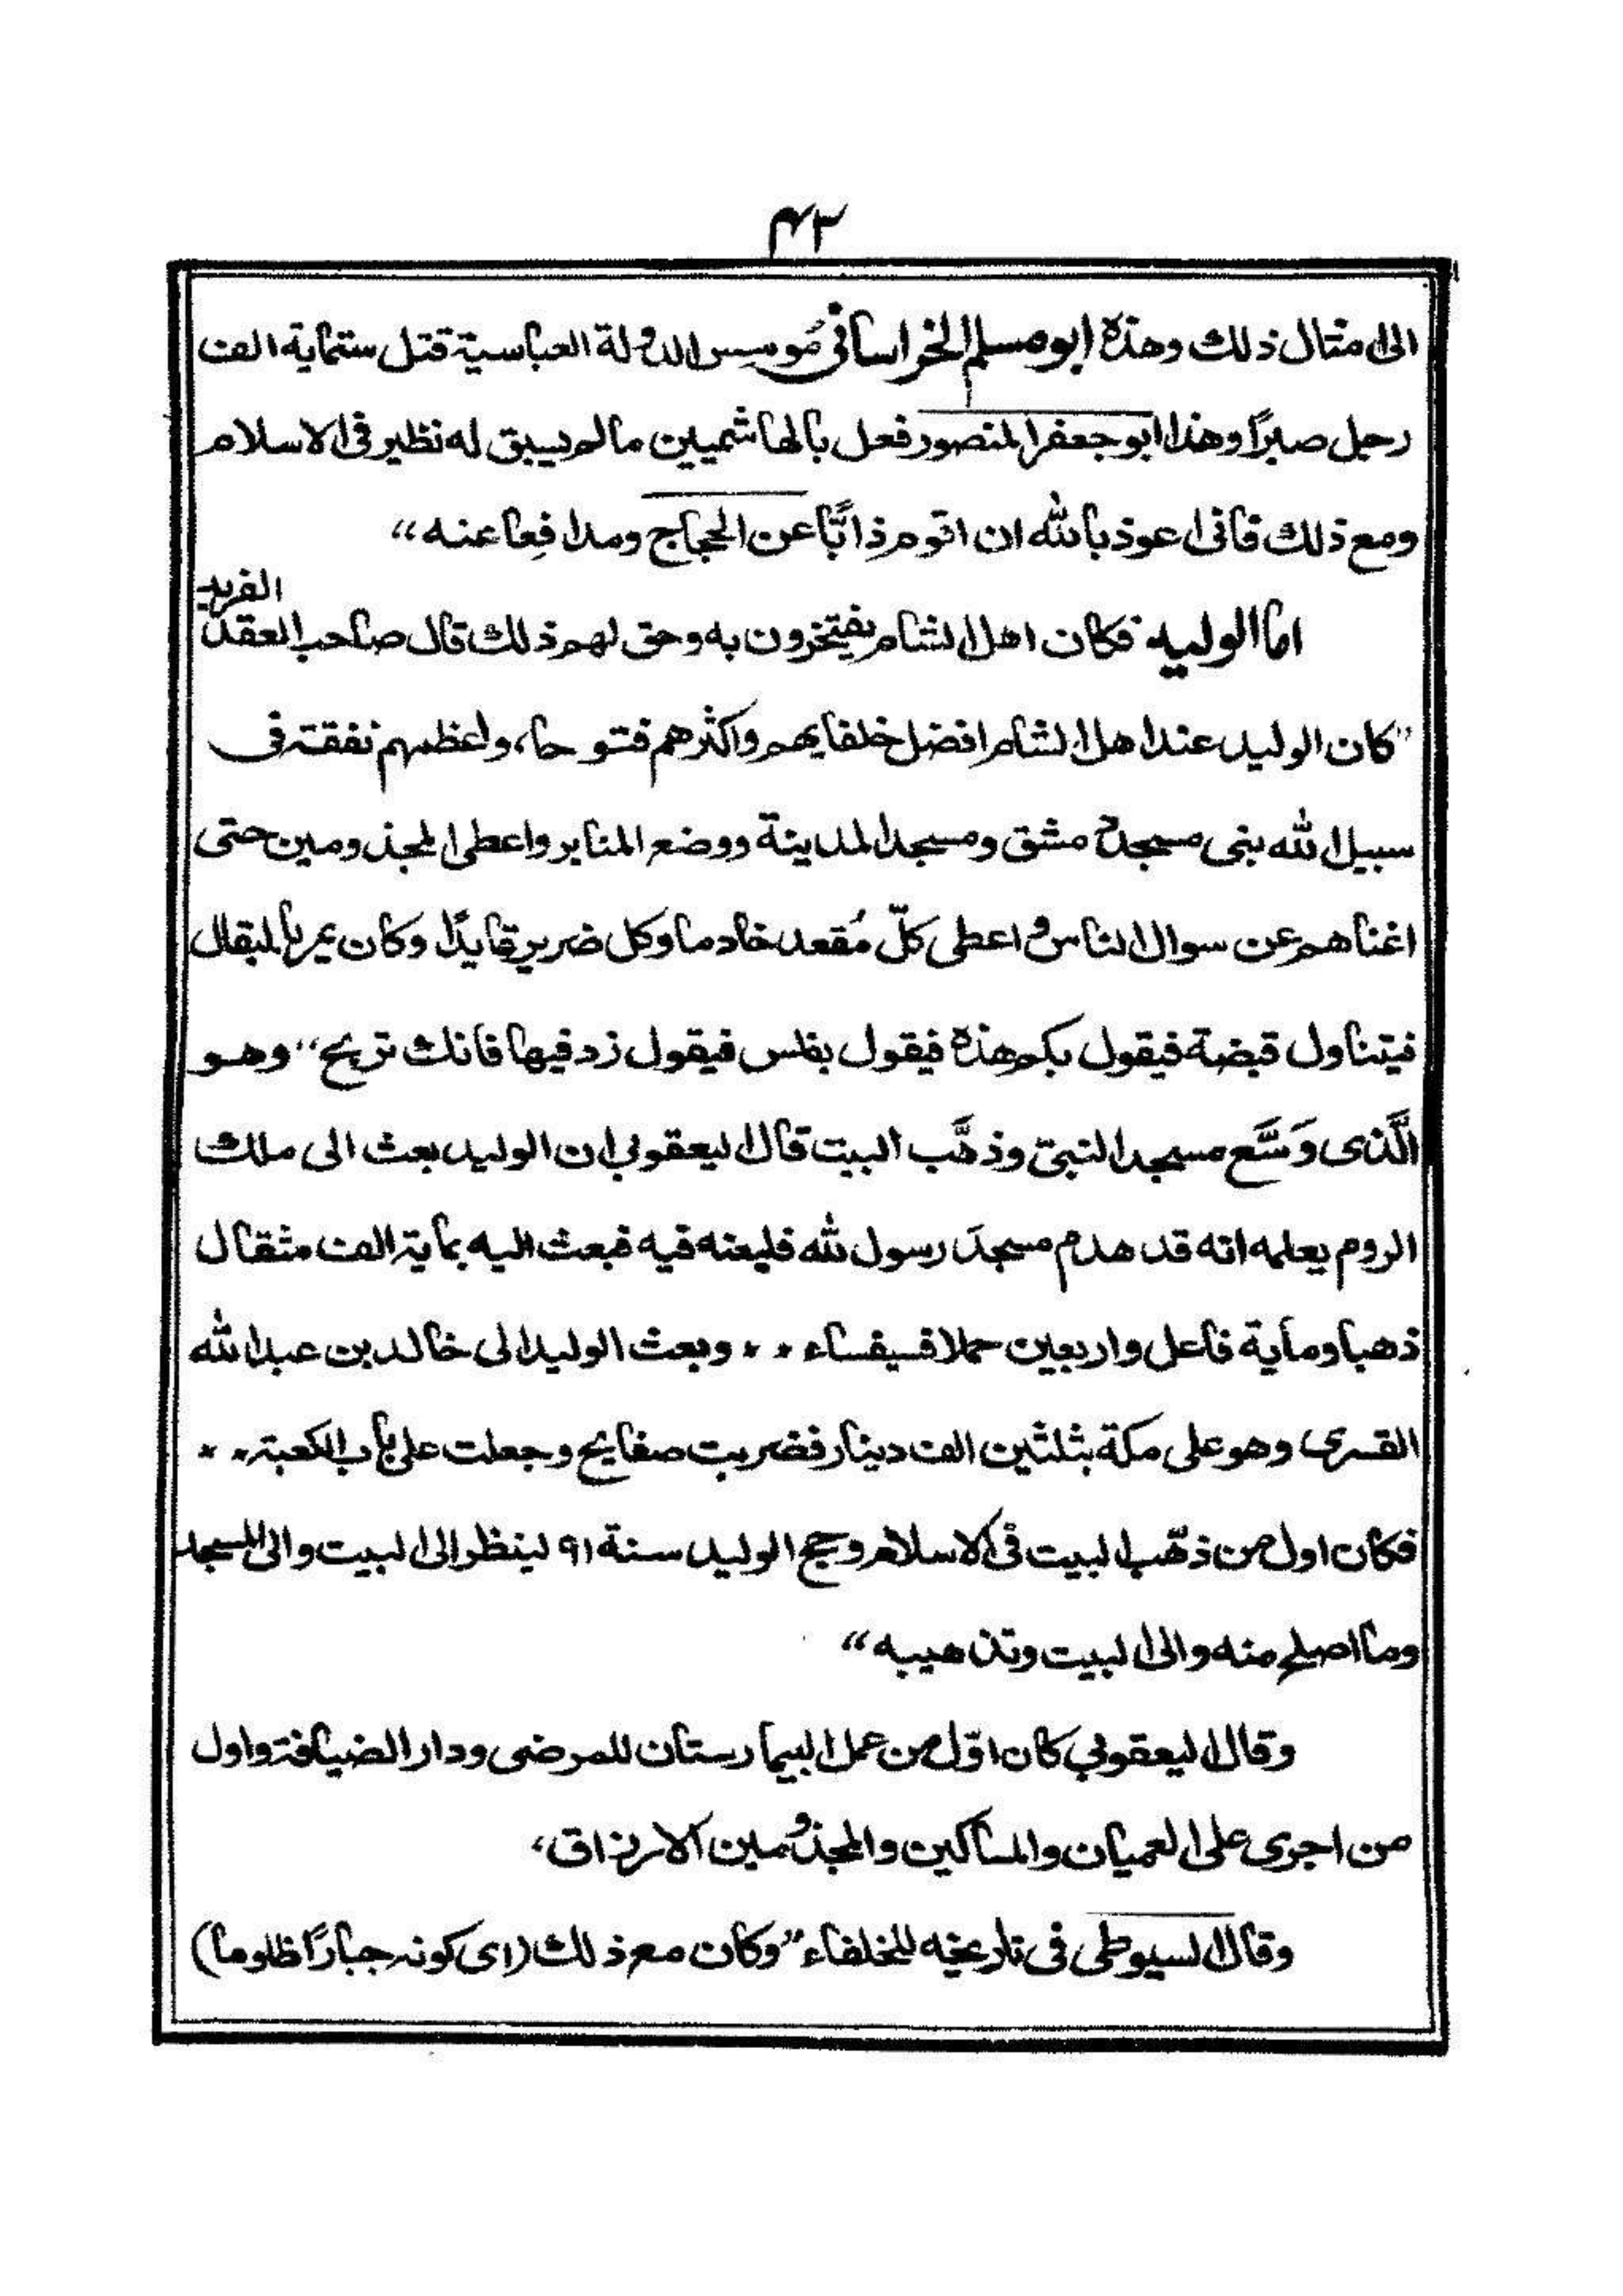 ۴۲
الی امثال ذلك وهذه ابو مسلم الخراسانی مُوسس الدولة العباسیة قتل ستمایة الف
رجل صبرًا وهذا ابو جعفر المنصور فعل بالهاشمیین مالم یسبق له نظیر فی الاسلام
ومع ذلك فانی اعوذ بالله ان اقوم ذابًّا عن الحجاج ومدافِعا عنه“
اما الولید فكان اهل الشام یفتخرون به وحق لهم ذلك قال صاحب العقد الفرید
”كان الولید عند اهل الشام افضل خلفایهم واكثرهم فتوحا، واعظمهم نفقة فی
سبیل الله بنی مسجد دمشق ومسجد المدینة ووضع المنابر واعطی المجذومین حتی
اغناهم عن سوال الناس و اعطی كلّ مُقعد خادما وكل ضریر قایدًا وكان یمر بالبقال
فیتناول قبضة فیقول بكم هذه فیقول بفلس فیقول زد فیها فانك تربح“ وهو
الَّذی وَسَّع مسجد النبیّ وذهَّب البیت قال الیعقوبی ان الولید بعث الی ملك
الروم یعلمه انه قد هدم مسجدَ رسول الله فلیعنه فیه فبعث الیه بمایة الف مثقال
ذهبا ومأیة فاعل واربعین حملا فسیفساء ٭ ٭ وبعث الولید الی خالد بن عبد الله
القسری وهو علی مكة بثلثین الف دینار فضربت صفایح وجعلت علی باب الكعبة ٭ ٭
فكان اول من ذهّب البیت فی الاسلام وحج الولید سنة ۹۱ لینظر الی البیت والی المسجد
وما اصلح منه والی البیت وتذهیبه“
وقال الیعقوبی كان اوّل من عمل البیمارستان للمرضی ودار الضیافة واول
من اجری علی العمیان والمساكین والمجذومین الارزاق،
وقال السیوطی فی تاریخه للخلفاء ”وكان مع ذلك (ای كونه جبارًا ظلوما)